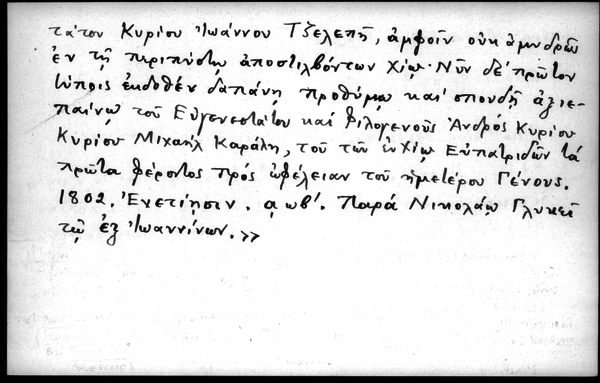 τάτου Κυρίου Ἰωάννου Τζελεπῆ, ἀμφοῖν οὐκ ἀμυδρῶς
ἐν τῇ περιπύστῳ ἀποστιλβόντων Χίῳ· Νῦν δὲ πρῶτον
τύποις ἐκδοθὲν δαπάνῃ προθύμῳ καὶ σπουδῇ ἀξιε-
παίνῳ τοῦ Εὐγενεστάτου καὶ Φιλογενοῦς Ἀνδρὸς Κυρίου
Κυρίου Μιχαὴλ Καράλη, τοῦ τῶν ἐν Χίῳ Εὐπατριδῶν τὰ
πρῶτα φέροντος πρὸς ὠφέλειαν τοῦ ἡμετέρου Γένους.
1802. Ἐνετίησιν. αωβʹ. Παρὰ Νικολάῳ Γλυκεῖ
τῷ ἐξ Ἰωαννίνων.>>